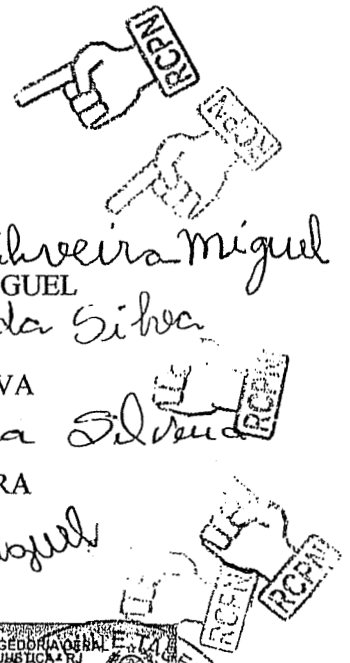 RCPN
RCPN
Silveira Miguel
GUEL
da Silva
VA
RCPN
a Silveira
RA
Miguel
RCPN
RCPN
GEDORIA GERAL
JUSTIÇA - RJ